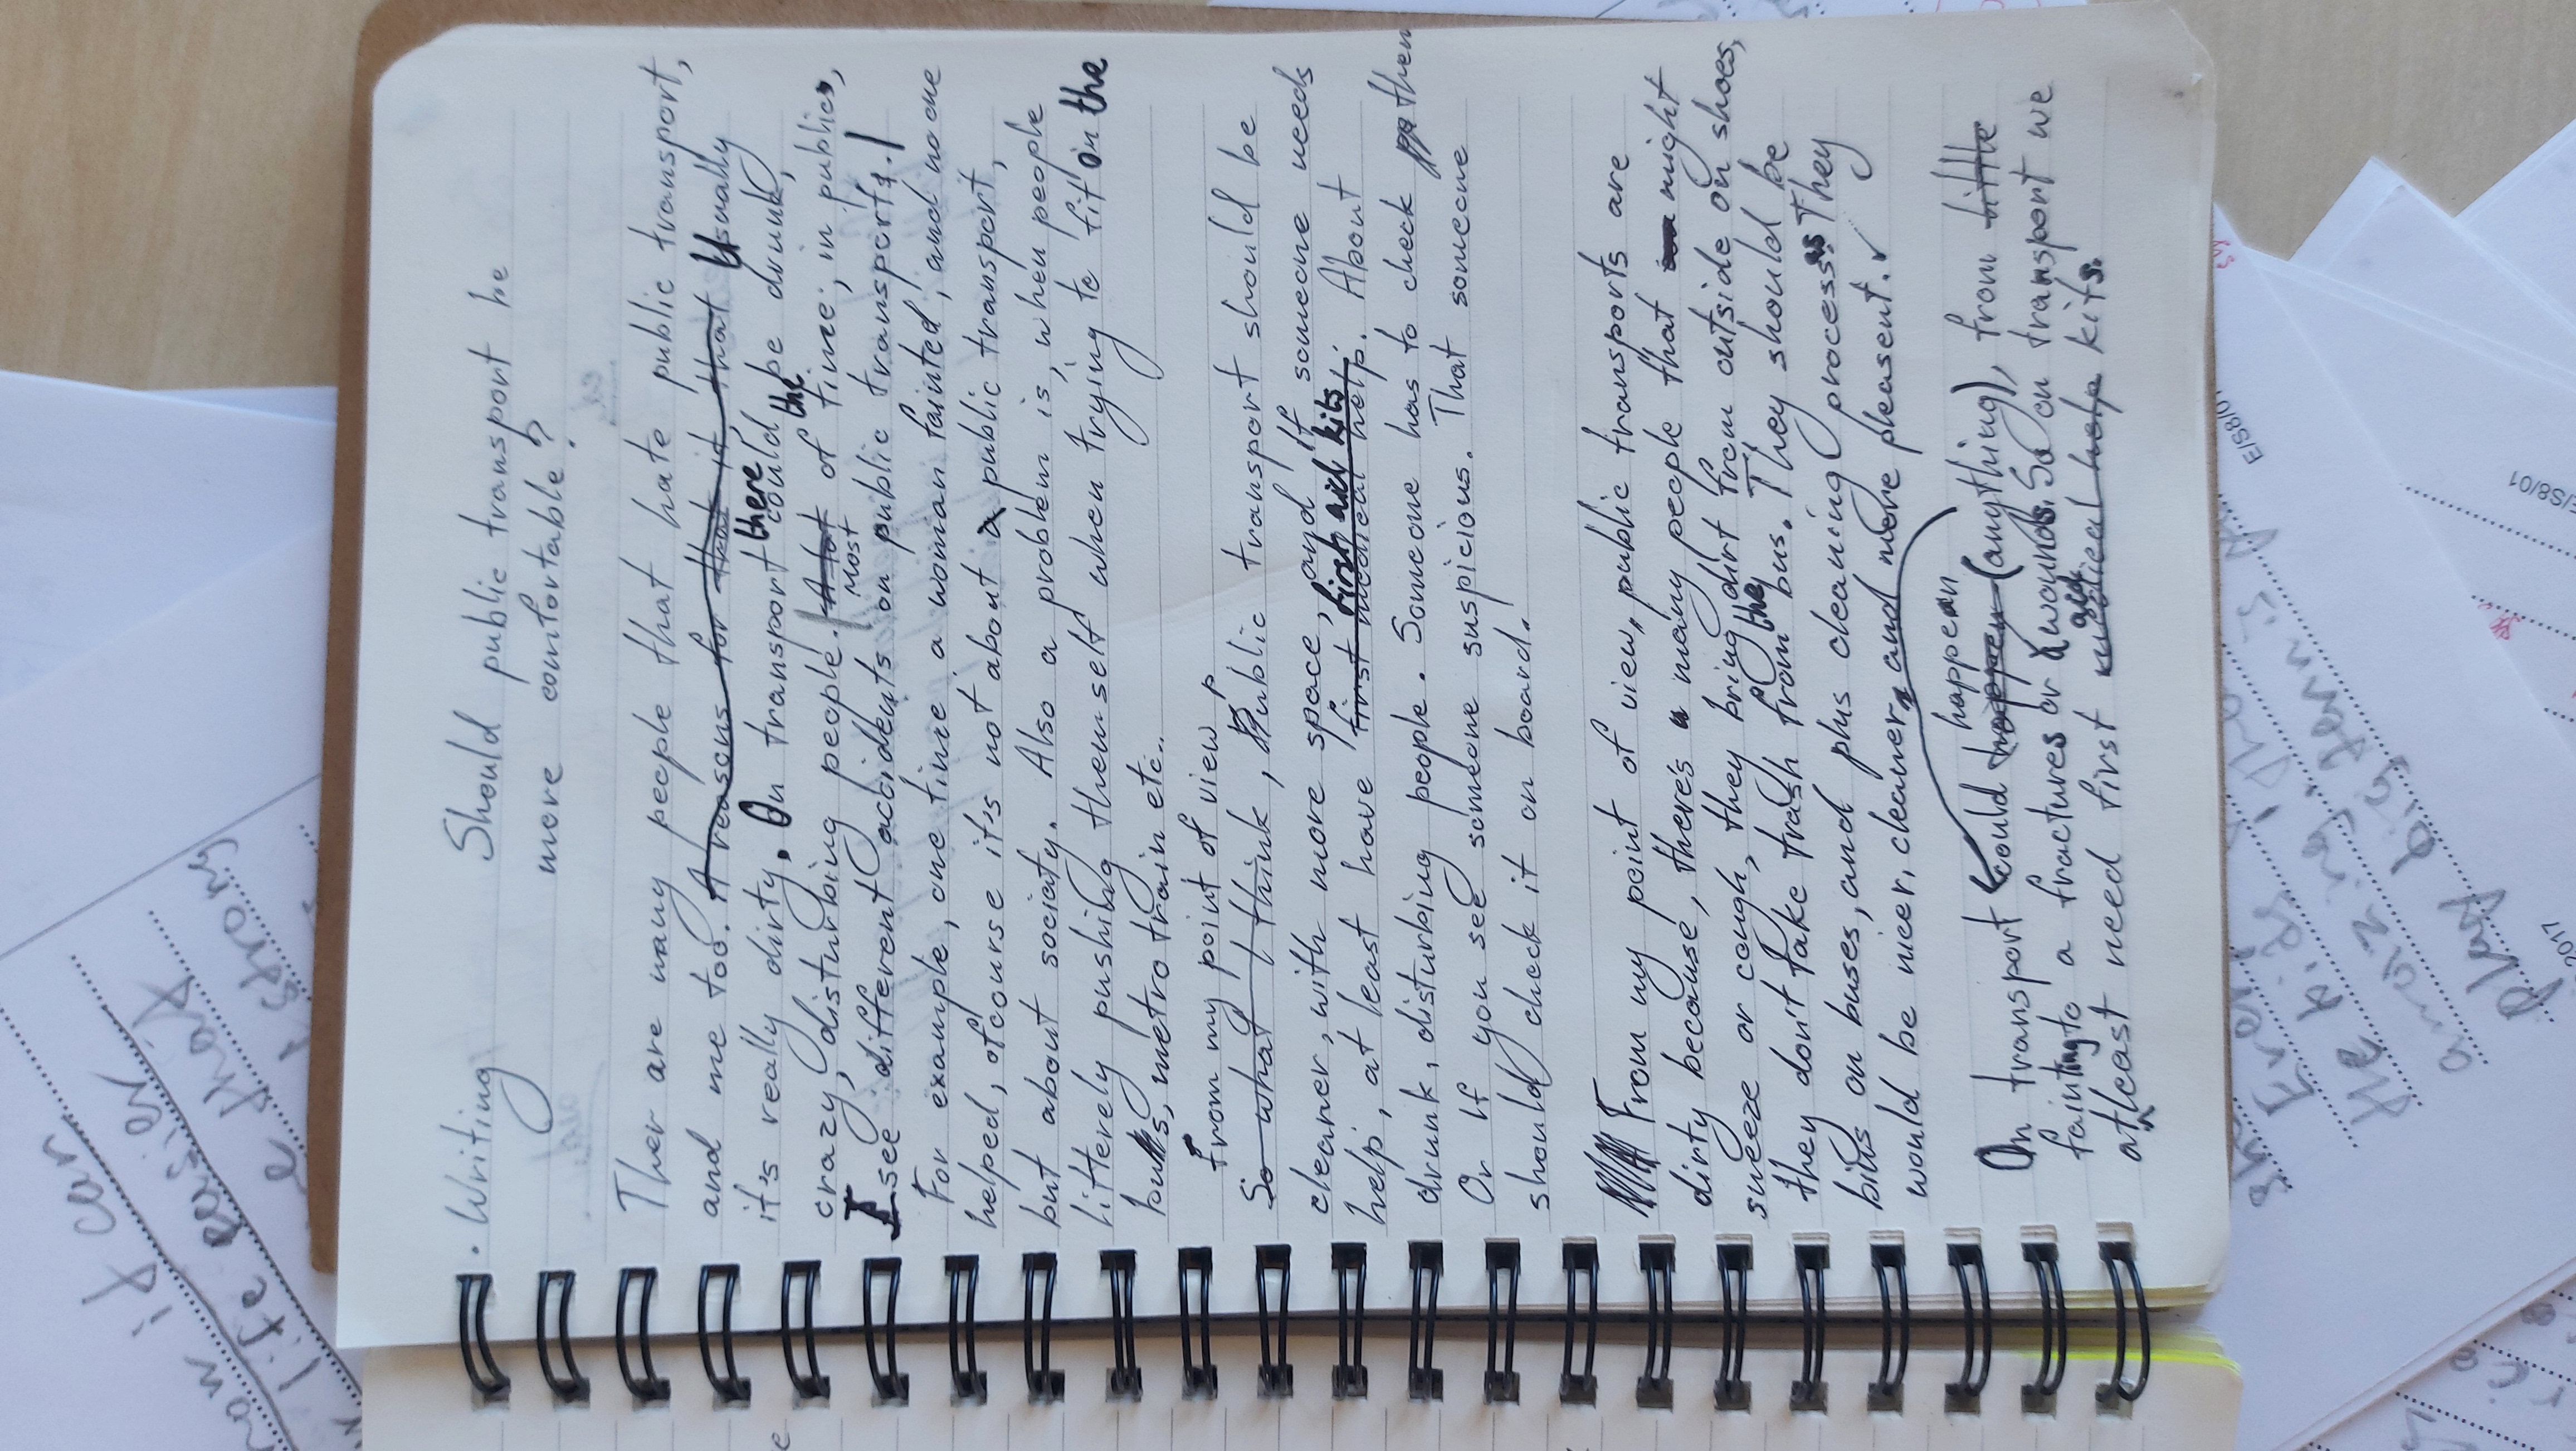 now it can
life easier
that
strong
. Writing Should public transport be
more comfortable?
Ther are many people that hate public transport,
and me too. A reasons for that it, that Usually
it's really dirty. On transport there could be drunk,
crazy, disturbing people. A lot Most of the time, in public,
I see different accidents on public transports.
For example, one time a woman fainted, and no one
helped, ofcourse it's not about a public transport,
but about sociaty. Also a problem is, when people
litterely pushing themself when trying to fit on the
bus, metro train etc..
From my point of view p
So what I think, Public transport should be
cleaner, with more space, and If someone needs
help, at least have first medical help first aid kits. About
drunk, disturbing people. Someone has to check them
Or If you see someone suspicious. That someone
should check it on board.
From my point of view, public transports are
dirty because, there's a many people that might
sneeze or cough, they bring dirt from outside on shoes,
they don't take trash from the bus. They should be
bins on buses, and plus cleaning process as They
would be nicer, cleaner, and more pleasent. ✓
happen
On transport could happen (anything), from little
fainting to a fractures or wounds. So on transport we
atleast need first medical help aid kits.
Every
He kids
amazing.
play big tennis
E/S8/01
2017
E/S8/01